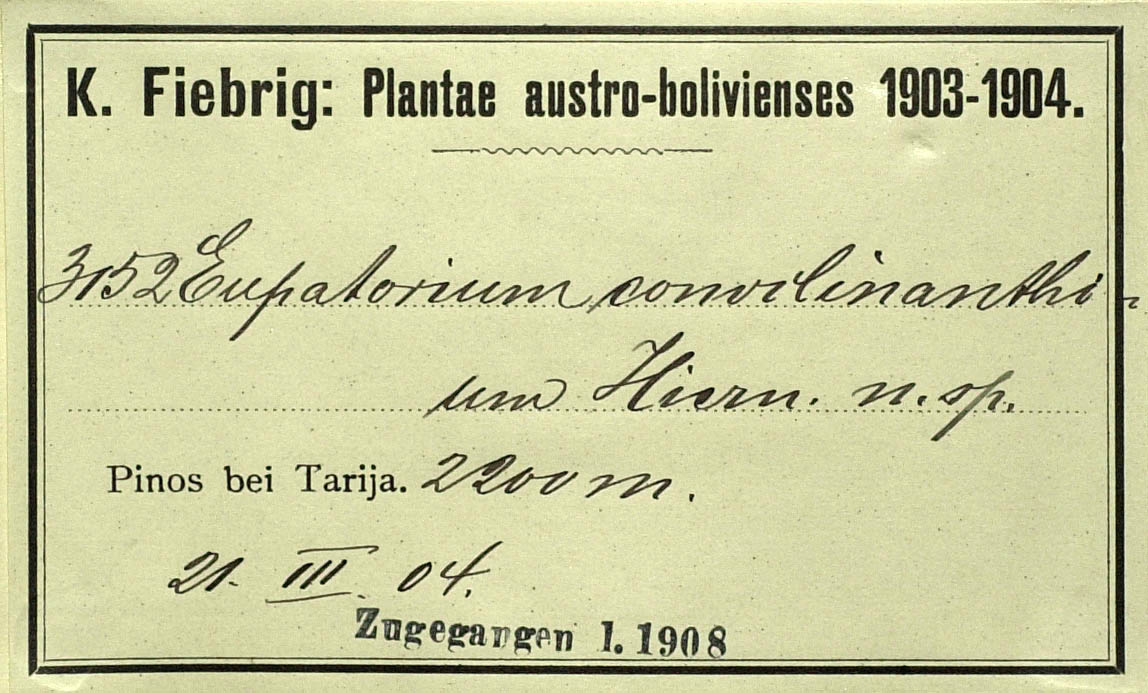 K. Fiebrig: Plantae austro-bolivienses 1903-1904.
3152 Eupatorium convilinanthi-
um Hiern. n. sp.
Pinos bei Tarija. 2200 m.
21. III. 04.
Zugegangen 1. 1908